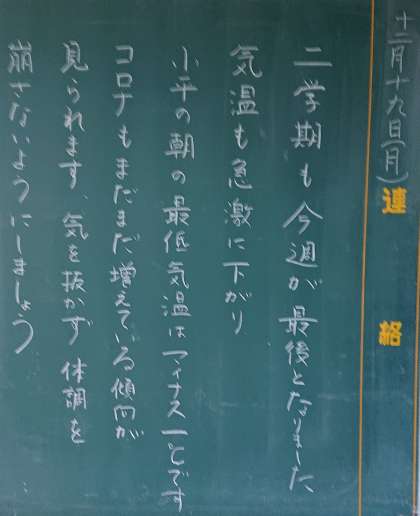 十二月十九日(月)
連絡
二学期も今週が最後となりました
気温も急激に下がり
小平の朝の最低気温はマイナス一℃です
コロナもまだまだ増えている傾向が
見られます、気を抜かず体調を
崩さないようにしましょう